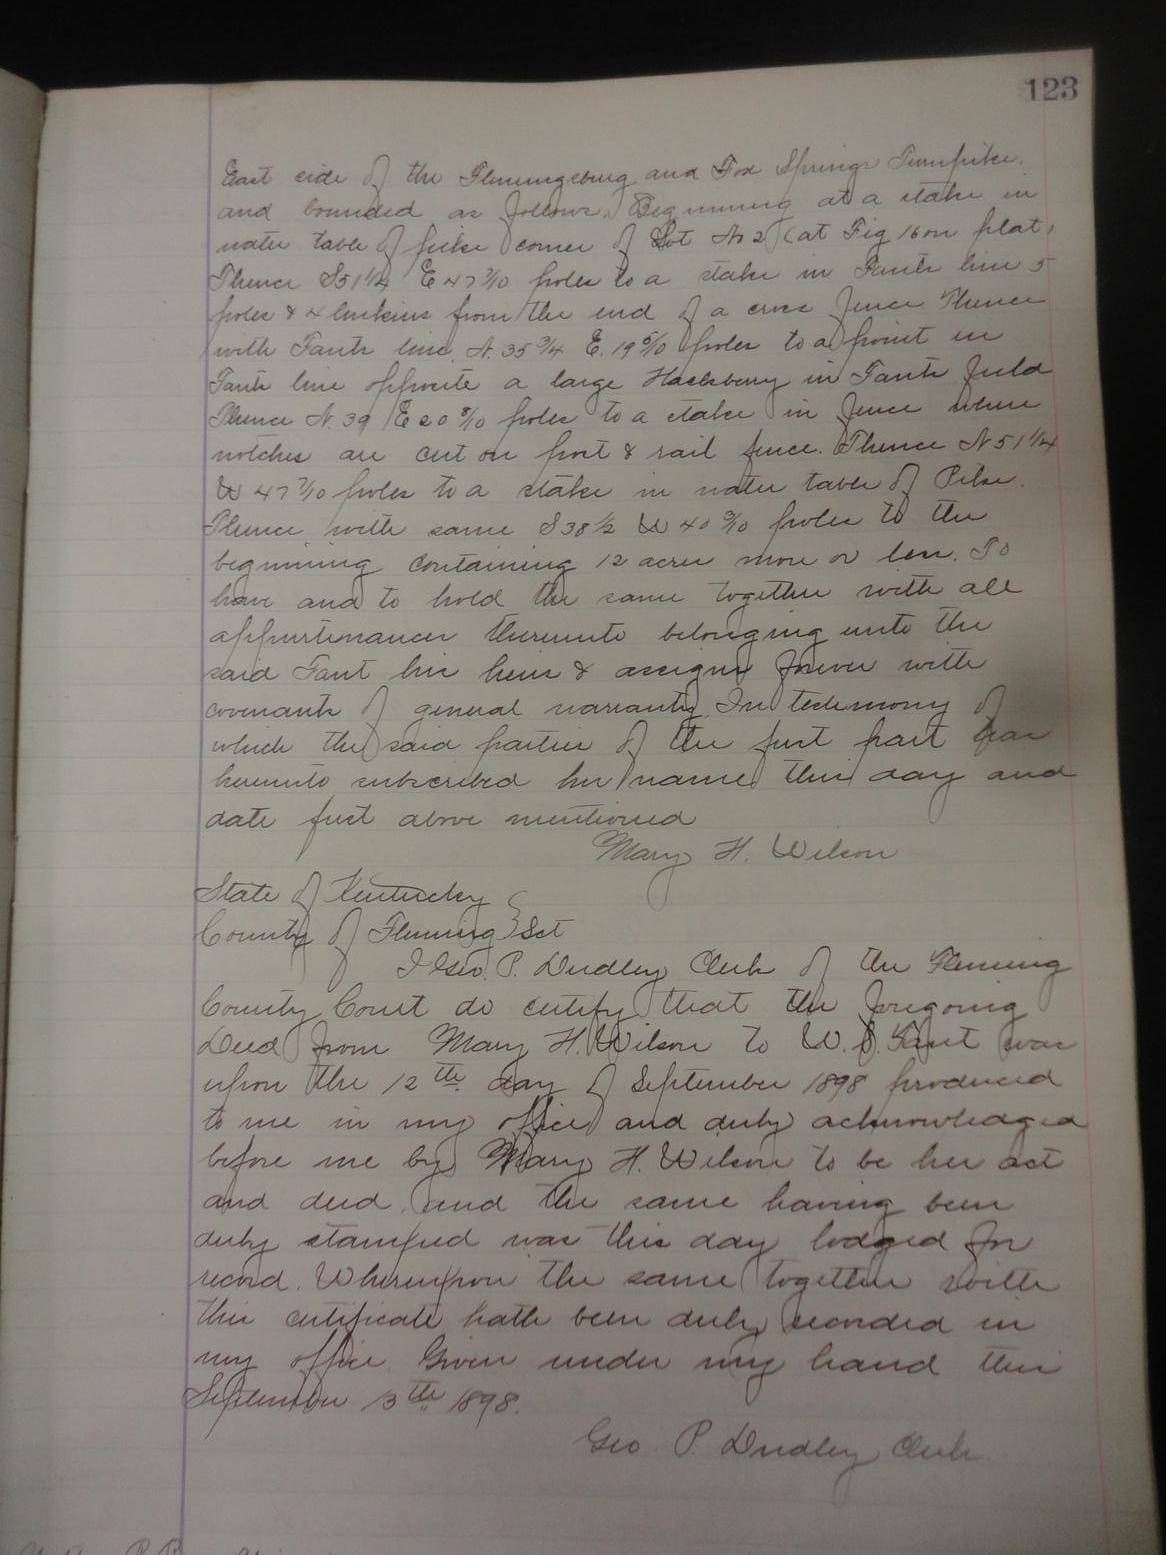 123
East side of the Flemingsburg and Fox Springs Turnpike.
and bounded as follows. Beginning at a stake in
water table of pike corner of Lot No 2 (at Fig 16 on plat,
Thence S 51 1/4 E 47 7/10 poles to a stake in Fants line 5
poles & 4 links from the end of a cross fence Thence
with Fants line N. 35 3/4 E. 19 5/10 poles to a point in
Fants line opposite a large Hackberry in Fants field
Thence N. 39 E 20 9/10 poles to a stake in fence where
notches are cut on post & rail fence. Thence N 51 1/4
W 47 7/10 poles to a stake in water table of Pike.
Thence with same S 38 1/2 W 40 9/10 poles to the
beginning containing 12 acres more or less. To
have and to hold the same together with all
appurtenances thereunto belonging unto the
said Fant his heirs & assigns forever with
covenants of general warranty In testimony of
which the said parties of the first part has
hereunto subscribed her name this day and
date first above mentioned
Mary H. Wilson
State of Kentucky
County of Fleming } Sct
I Geo. P. Dudley Clerk of the Fleming
County Court do certify that the foregoing
Deed from Mary H. Wilson to W. S. Fant was
upon the 12th day of September 1898 produced
to me in my office and duly acknowledged
before me by Mary H. Wilson to be her act
and deed, and the same having been
duly stamped was this day lodged for
record. Whereupon the same together with
this certificate hath been duly recorded in
my office. Given under my hand this
September 13th 1898.
Geo. P. Dudley Clerk